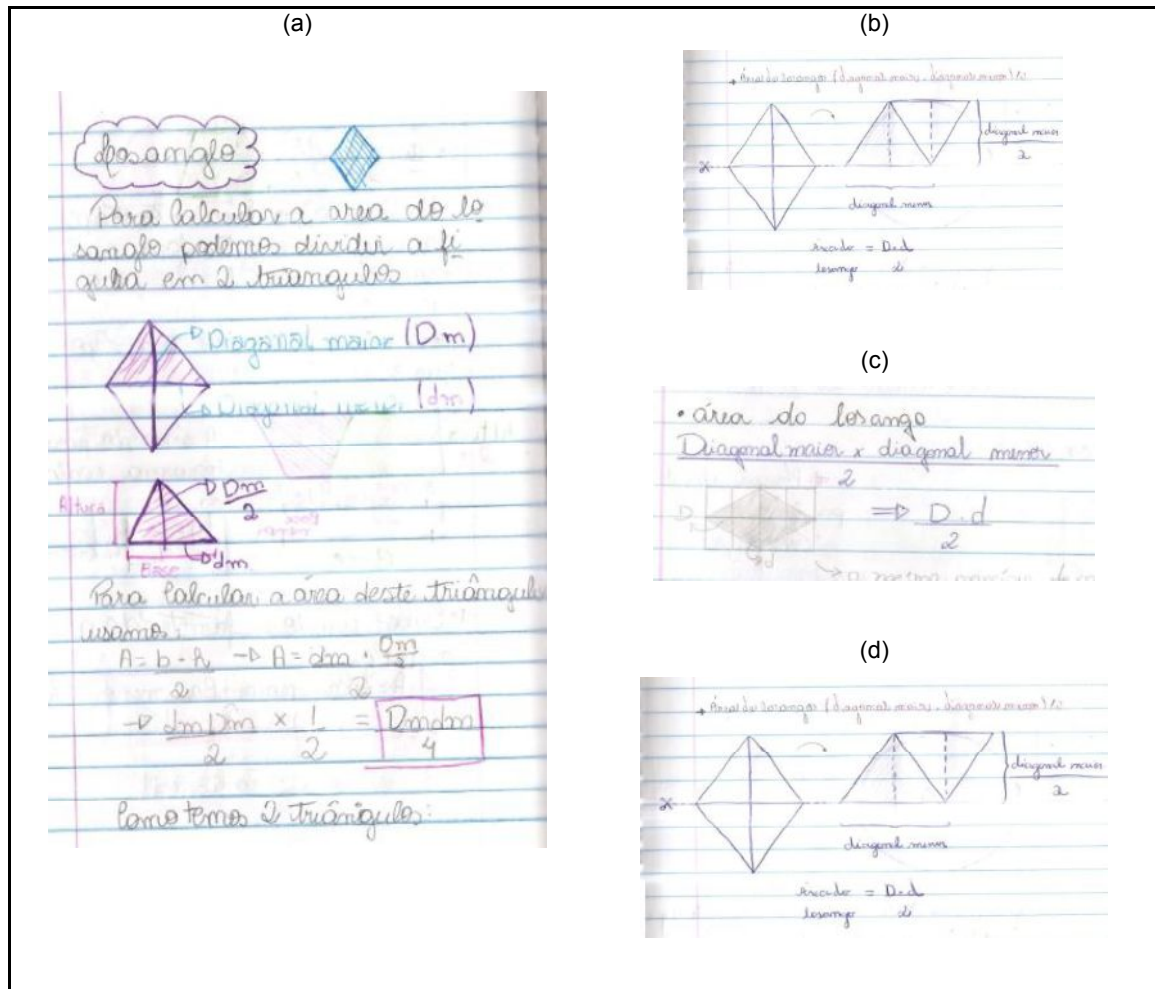 (a)
Losanglo
Para Calcular a area do lo
sanglo podemos dividir a fi
gura em 2 triangulos
Diagonal maior (Dm)
Diagonal menor (dm)
Altura
Dm
2
dm
Base
Para Calcular a área deste triângulo
usamos:
A = b . h → A = dm . Dm
2
2
2
→ dm Dm × 1 = Dmdm
2 2 4
Como temos 2 triângulos:
(b)
Área do losango (diagonal maior . diagonal menor)
x
diagonal maior
2
diagonal menor
= D.d
losango 2
(c)
• área do losango
Diagonal maior x diagonal menor
2
D
⇒ D . d
2
d
(d)
Área do losango (diagonal maior . diagonal menor)
x
diagonal maior
2
diagonal menor
= D.d
losango 2